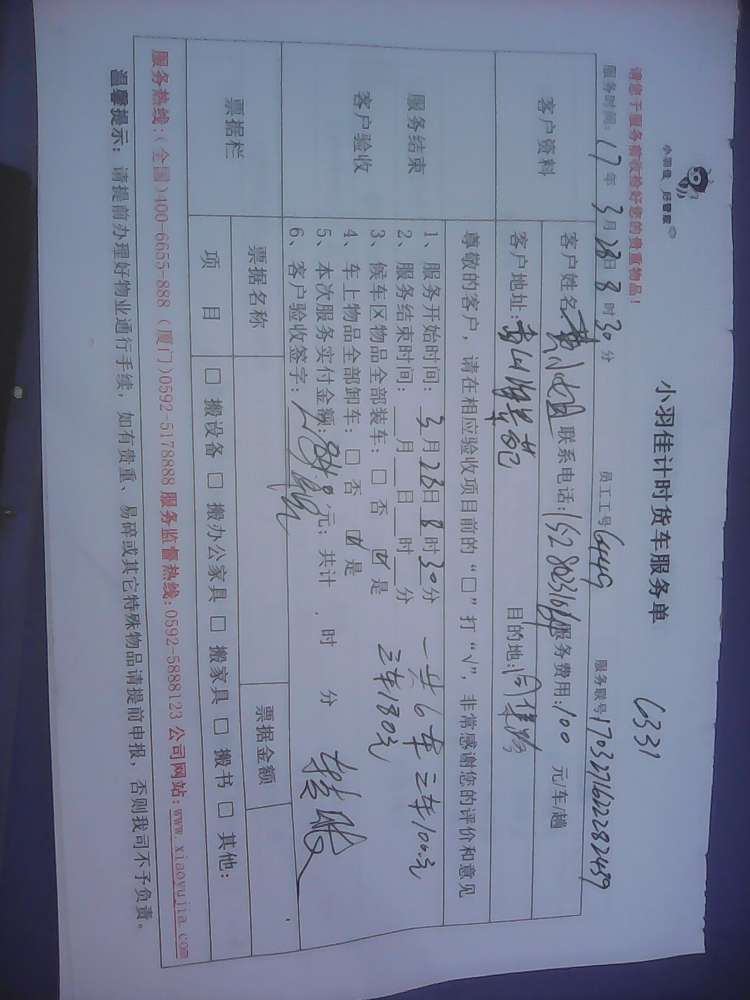 小羽佳 居管家
小羽佳计时货车服务单
6331
请您于服务前收捡好您的贵重物品！
服务时间：17年3月28日8时30分 员工工号6449 服务联号
客户资料
客户姓名黄小姐联系电话: 服务费用:100 元/车/趟
客户地址: 目的地:
服务结束
客户验收
尊敬的客户，请在相应验收项目前的“□”打“√”，非常感谢您的评价和意见
1、服务开始时间：3月28日8时30分 一共6车 三车100元
2、服务结束时间：__月__日__时__分 三车180元
3、候车区物品全部装车：□ 否 ☑ 是
4、车上物品全部卸车：□ 否 ☑ 是
5、本次服务实付金额: 元；共计 时 分 转账
6、客户验收签字：
票据栏
票据名称 票据金额
项 目 □ 搬设备 □ 搬办公家具 □ 搬家具 □ 搬书 □ 其他:
服务热线:(全国)400-6655-888 (厦门)0592-5178888 服务监督热线:0592-5888123 公司网站:www.xiaoyujia.com
温馨提示：请提前办理好物业通行手续，如有贵重、易碎或其它特殊物品请提前申报，否则我司不予负责。